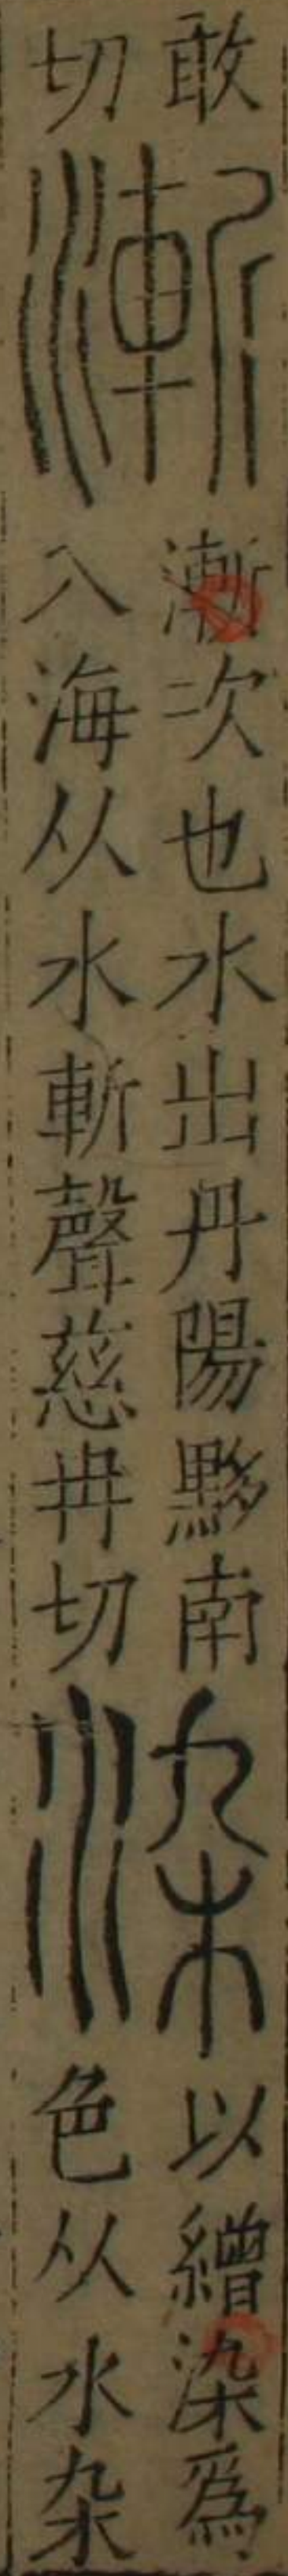 敢
切
漸
漸次也水出丹陽黟南
入海从水斬聲慈冉切
染
以繒染爲
色从水杂